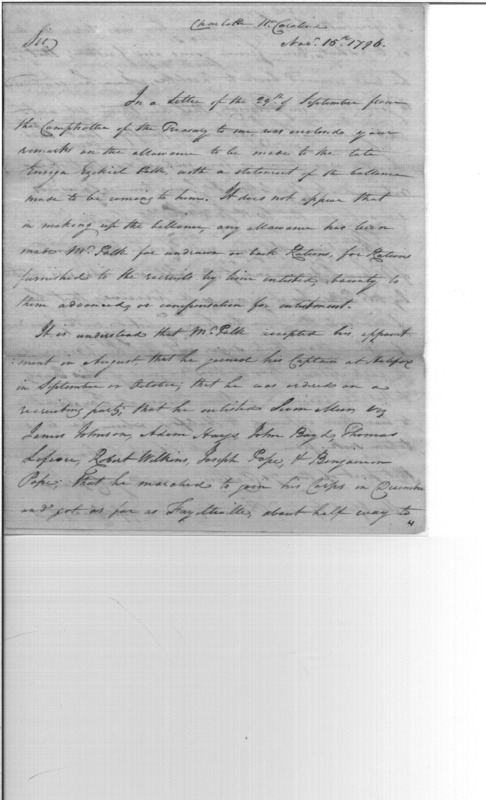 Charlotte No. Carolina
Nov. 15th. 1796.
Sir,
In a Letter of the 29th of September from
the Comptroller of the Treasury to me was enclosed your
remarks on the allowance to be made to the late
Ensign Ezekiel Polk, with a statement of the ballance
made to be coming to him. It does not appear that
in making up the ballance, any allowance has been
made Mr. Polk for undrawn or back Rations, for Rations
furnished to the recruits by him enlisted, bounty to
them advanced, or compensation for enlistment.
It is understood that Mr. Polk accepted his appoint
ment in August, that he joined his Captain at Halifax
in September or October, that he was ordered on a
recruiting party, that he enlisted Seven Men viz
James Johnson, Adam Hayes, John Boyd, Thomas
Robert Wilkins, Joseph Pope, & Benjamin
Pope; that he marched to join his Corps in December
and got as far as Fayetteville, about half way to